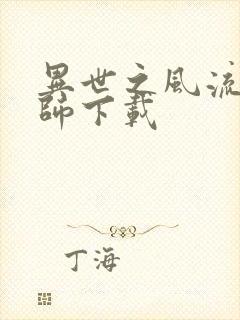 異世之風流
師下載
丁海